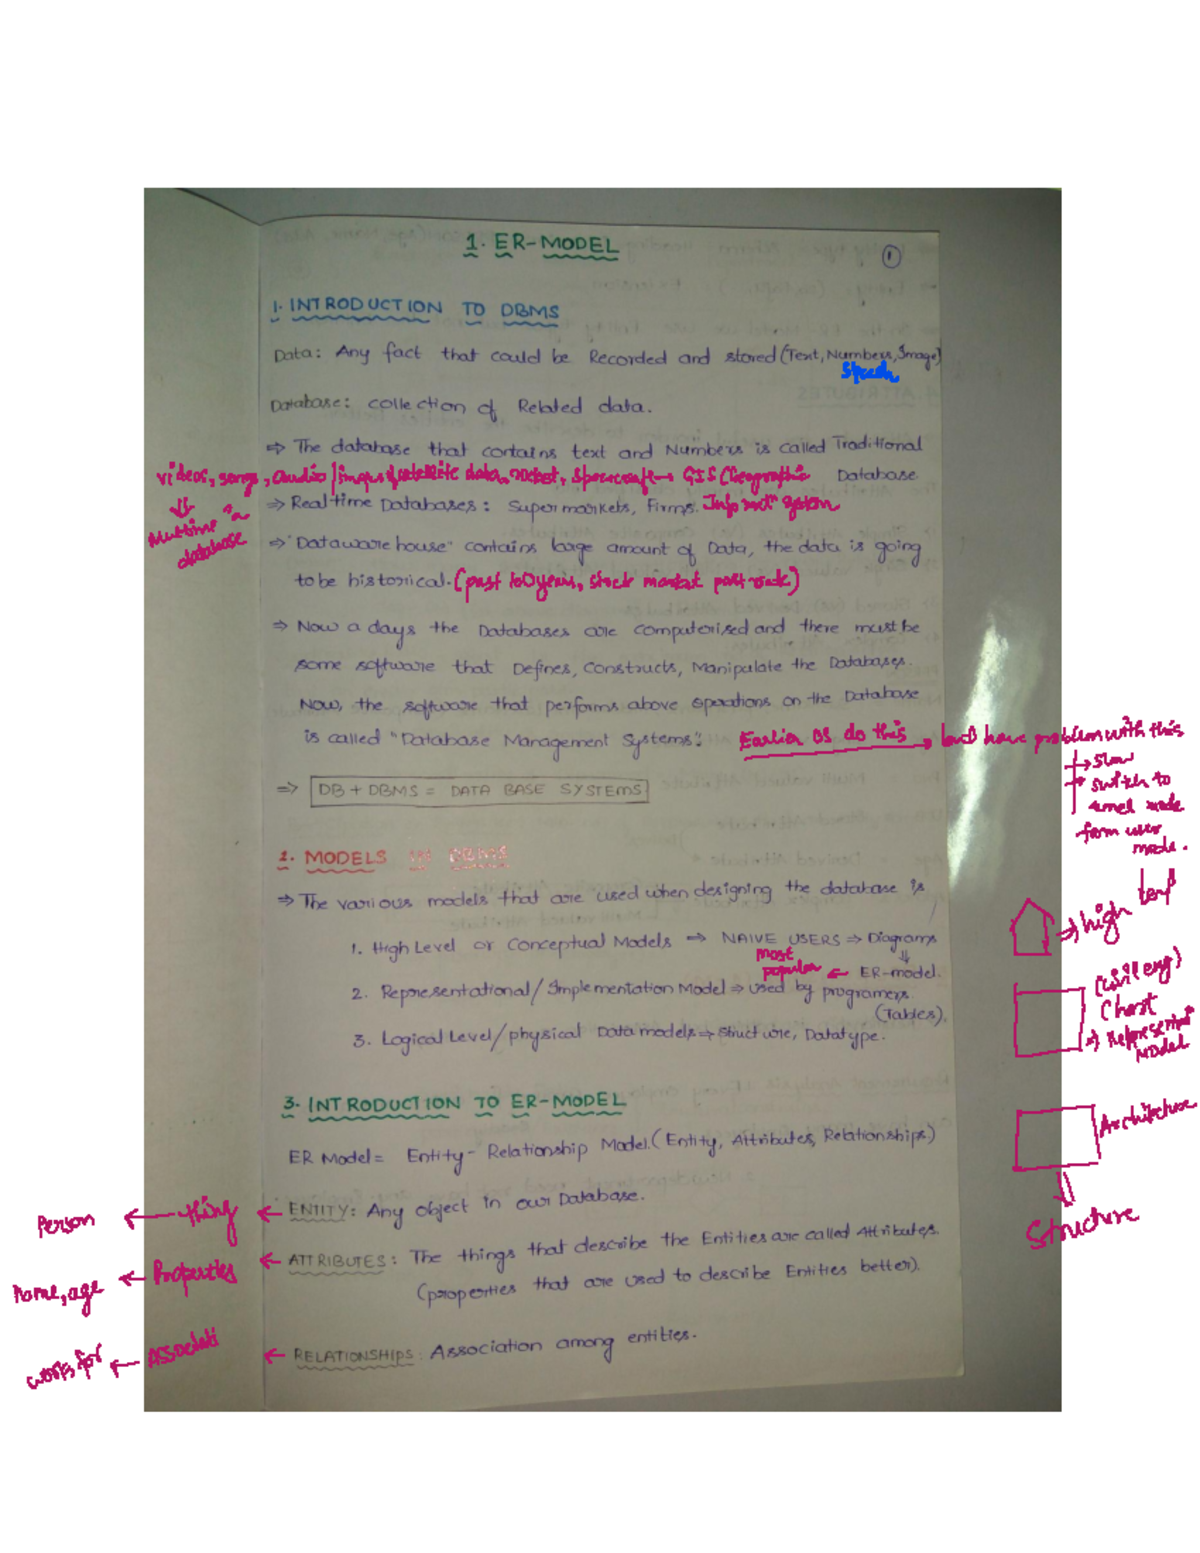 1. ER-MODEL
1
1. INTRODUCTION TO DBMS
Data: Any fact that could be Recorded and stored (Text, Numbers, Image)
Speech
Database: collection of Related data.
⇒ The database that contains text and Numbers is called Traditional
Database
videos, songs, audio/images satellite data, rocket, Spacecraft → GIS (Geographic
⇒ Realtime Databases: Supermarkets, Firms. System
database
⇒ "Dataware house" contains large amount of Data, the data is going
to be historical. (past 100 years, stock market past rock)
⇒ Now a days the Databases are computerised and there must be
some software that Defines, Constructs, Manipulate the Databases.
Now, the software that performs above operations on the Database
is called "Database Management Systems".
Earlier OS do this → but have problem with this
→ slow
→ switch to
kernel mode
from user
mode.
⇒ DB + DBMS = DATA BASE SYSTEMS
2. MODELS IN DBMS
⇒ The various models that are used when designing the database is
1. High Level or Conceptual Models ⇒ NAIVE USERS ⇒ Diagrams
⇓
most
popular ← ER-model.
2. Representational/Implementation Model ⇒ used by programers.
(Tables).
3. Logical Level/physical Data models → Structure, Datatype.
⇒ high level
(civil eng)
Chart
⇒ Represent
Model
Architecture
⇓
Structure
3. INTRODUCTION TO ER-MODEL
ER Model = Entity-Relationship Model. (Entity, Attributes, Relationships)
Person ← thing ← ENTITY: Any object in our Database.
name, age ← Properties ← ATTRIBUTES: The things that describe the Entities are called Attributes.
(properties that are used to describe Entities better).
works for ← Associati ← RELATIONSHIPS: Association among entities.